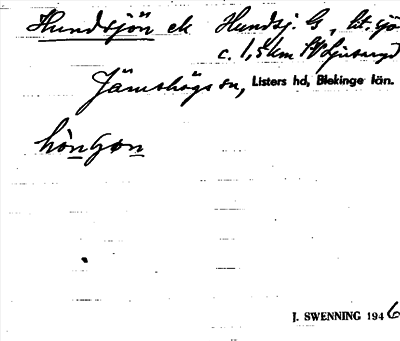 Hundsjön ek Hundsj. G, lit. sjö
c. 1,5 km SV Ljuaryd
Jämshögs sn, Listers hd, Blekinge län.
hònʃøn
J. SWENNING 1946